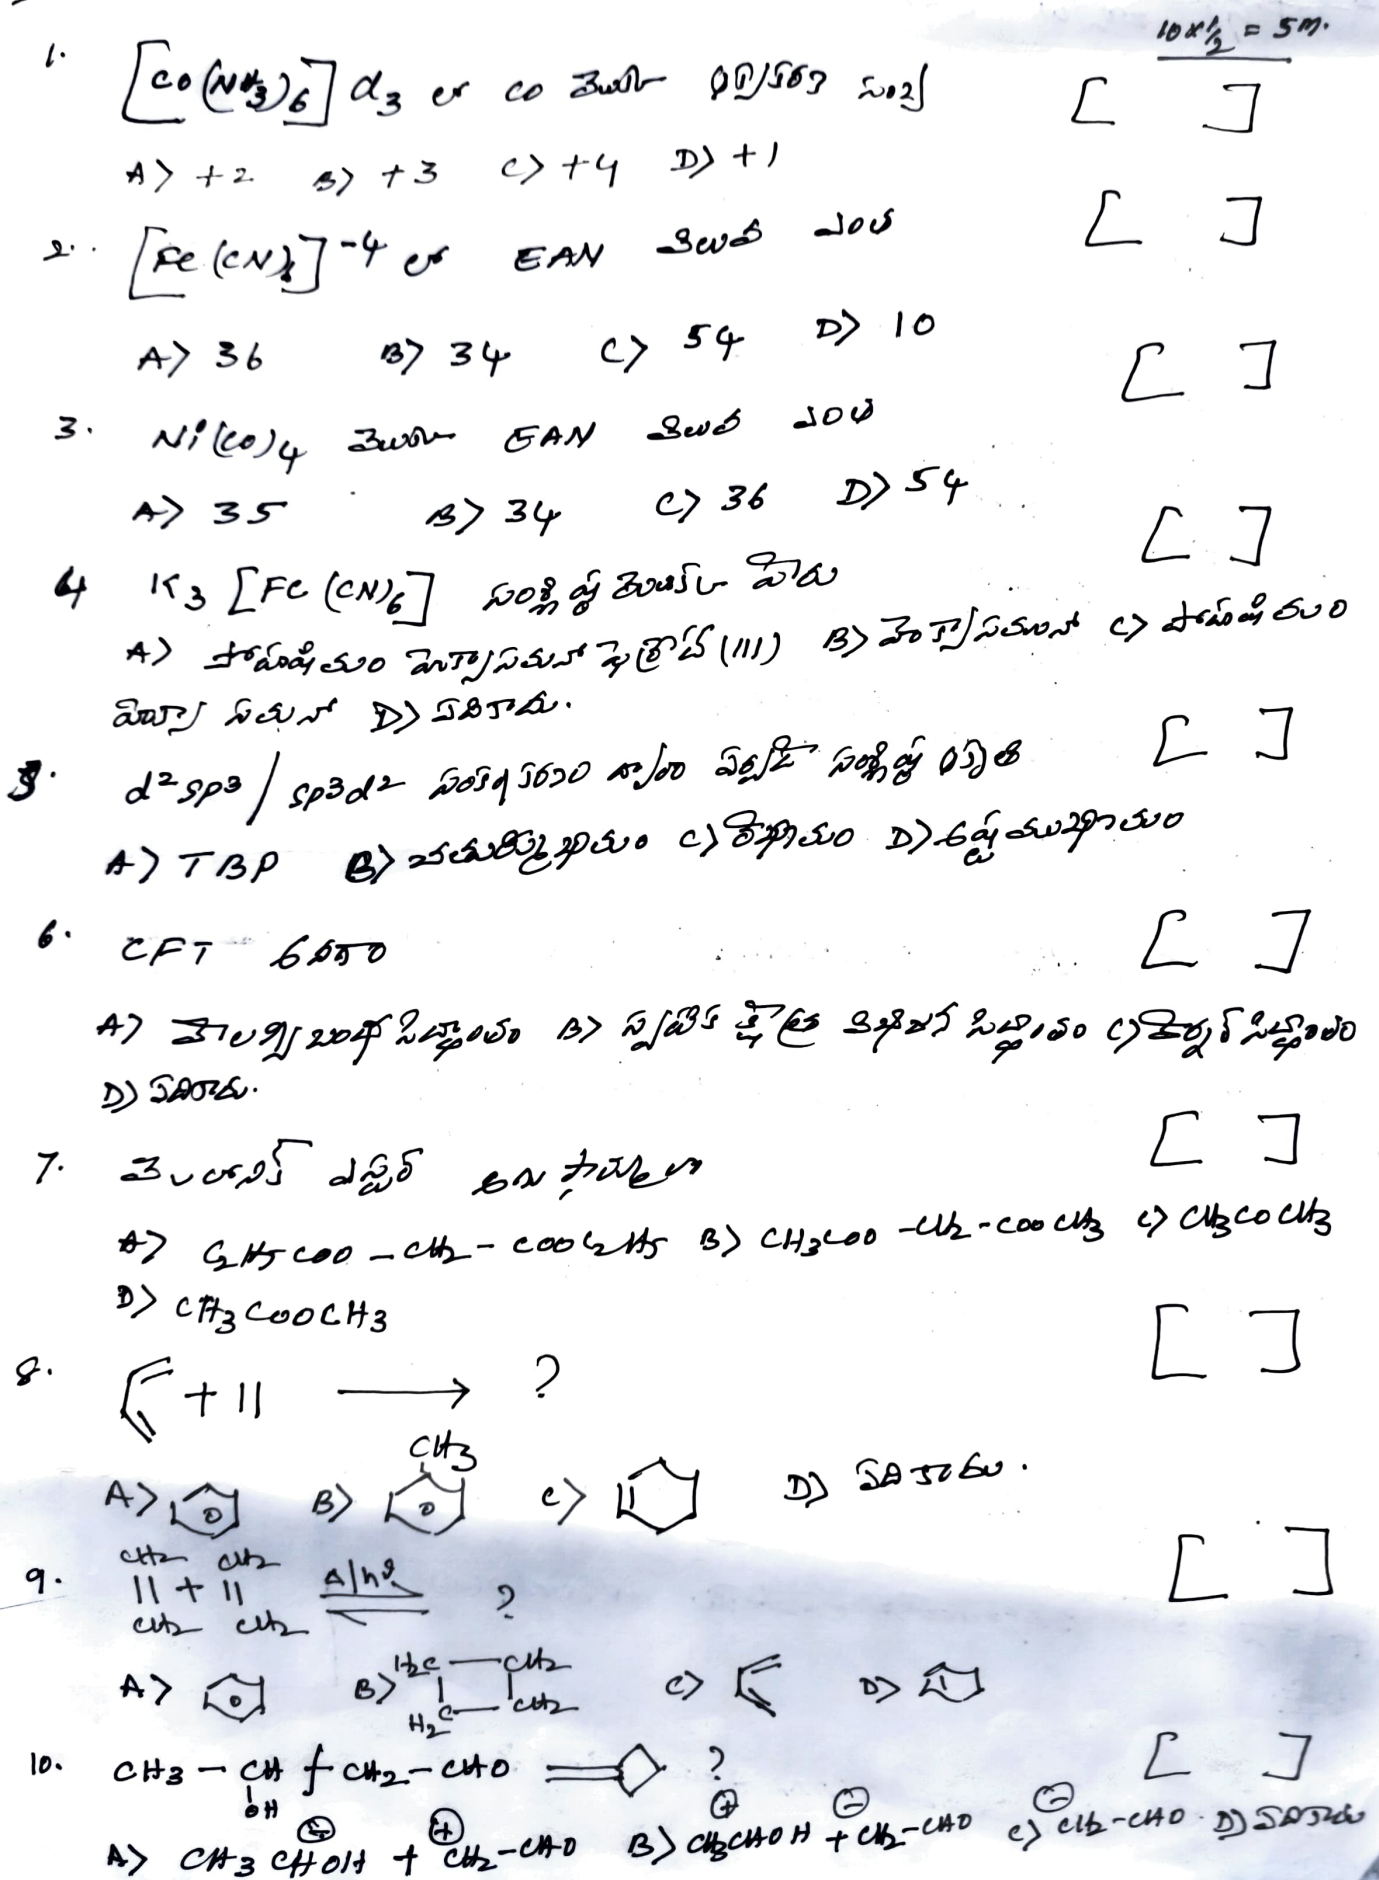 10 x 1/2 = 5 M.
1. [Co(NH3)6]Cl3 లో Co యొక్క సంఖ్య [ ]
A) +2 B) +3 C) +4 D) +1
2. [Fe(CN)6]-4 లో EAN విలువ ఎంత [ ]
A) 36 B) 34 C) 54 D) 10
3. Ni(CO)4 యొక్క EAN విలువ ఎంత [ ]
A) 35 B) 34 C) 36 D) 54
4 K3[Fe(CN)6] సంశ్లిష్ట పేరు [ ]
A) పోటాషియం ఫెర్రేట్ (III) B) C) పోటాషియం
D) ఏదికాదు.
5. d2sp3 / sp3d2 సంకరీకరణం ద్వారా ఏర్పడే సంశ్లిష్ట ఆకృతి [ ]
A) TBP B) చతుర్ముఖీయం C) D) అష్టముఖీయం
6. CFT అనగా [ ]
A) వేలన్సీ బంధ సిద్ధాంతం B) స్ఫటిక క్షేత్ర సిద్ధాంతం C) వెర్నర్ సిద్ధాంతం
D) ఏదికాదు.
7. మెలోనిక్ ఎస్టర్ అణు ఫార్ములా [ ]
A) C2H5COO-CH2-COOC2H5 B) CH3COO-CH2-COOCH3 C) CH3COCH3
D) CH3COOCH3
8. + || → ? [ ]
CH3
A) B) C) D) ఏదికాదు.
CH2 CH2
9. || + || Δ/hν ? [ ]
CH2 CH2
A) B) H2C-CH2 C) D)
H2C-CH2
10. CH3-CH-CH2-CHO ? [ ]
OH
A) CH3CHOH + CH2-CHO B) CH3CHOH + CH2-CHO C) CH2-CHO D) ఏదికాదు